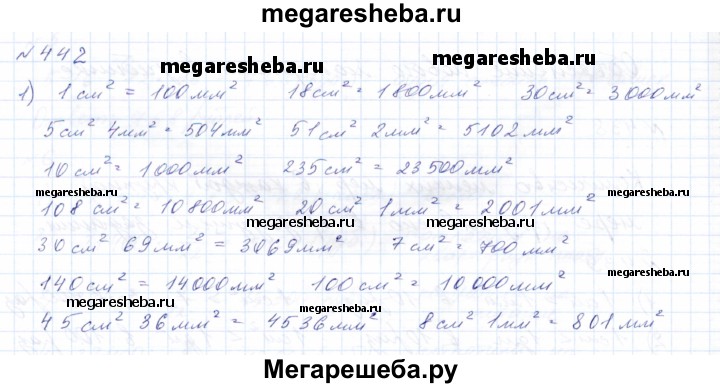 megaresheba.ru
№442
megaresheba.ru megaresheba.ru
1) 1см² = 100мм² 18см² = 1800мм² 30см² = 3000мм²
5см² 4мм² = 504мм² 51см² 2мм² = 5102мм²
10см² = 1000мм² 235см² = 23500мм²
megaresheba.ru megaresheba.ru
108 см² = 10800мм² 20см² 1мм² = 2001мм²
megaresheba.ru megaresheba.ru
30см² 69мм² = 3069мм² 7см² = 700мм²
140см² = 14000мм² 100см² = 10000мм²
megaresheba.ru megaresheba.ru
45см² 36мм² = 4536мм² 8см² 1мм² = 801мм²
Мегарешеба.ру